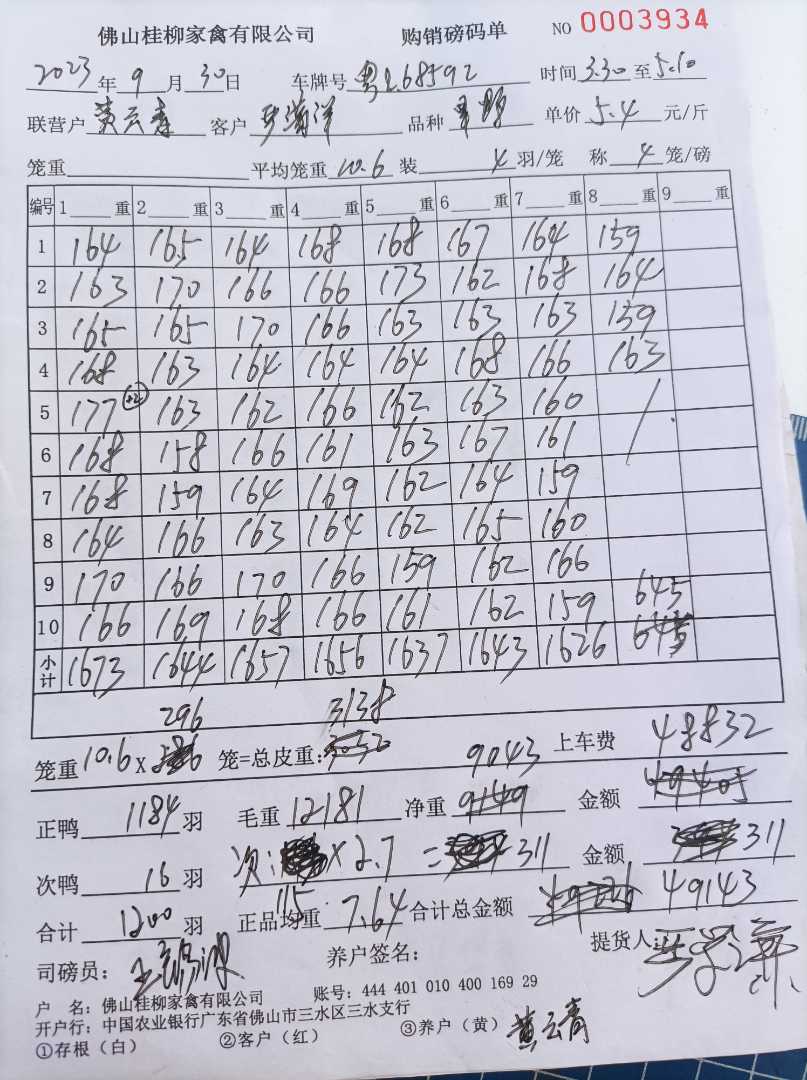 佛山桂柳家禽有限公司 购销磅码单 NO 0003934
2023年9月30日 车牌号 粤L68592 时间3.30至5.10
联营户 黄云青 客户 品种 单价5.4元/斤
笼重 平均笼重10.6 装4羽/笼 称4笼/磅
编号 1 重 2 重 3 重 4 重 5 重 6 重 7 重 8 重 9 重
1 164 165 164 168 168 167 164 159
2 163 170 166 166 173 162 168 164
3 165 165 170 166 163 163 163 159
4 168 163 164 164 164 168 166 163
5 177 +2 163 162 166 162 163 160 /
6 168 158 166 161 163 167 161
7 168 159 164 169 162 164 159
8 164 166 163 164 162 165 160
9 170 166 170 166 159 162 166
10 166 169 168 166 161 162 159 645
小计 1673 1644 1657 1656 1637 1643 1626
296 3138
笼重10.6X 笼=总皮重: 9043 上车费 48832
正鸭1184羽 毛重12181 净重9149 金额49405
次鸭16羽 次 X2.7= 311 金额 311
115
合计1200羽 正品均重7.64 合计总金额 49143
司磅员: 养户签名: 提货人:
户 名: 佛山桂柳家禽有限公司 账号: 444 401 010 400 169 29
开户行: 中国农业银行广东省佛山市三水区三水支行
①存根(白) ②客户(红) ③养户(黄) 黄云青